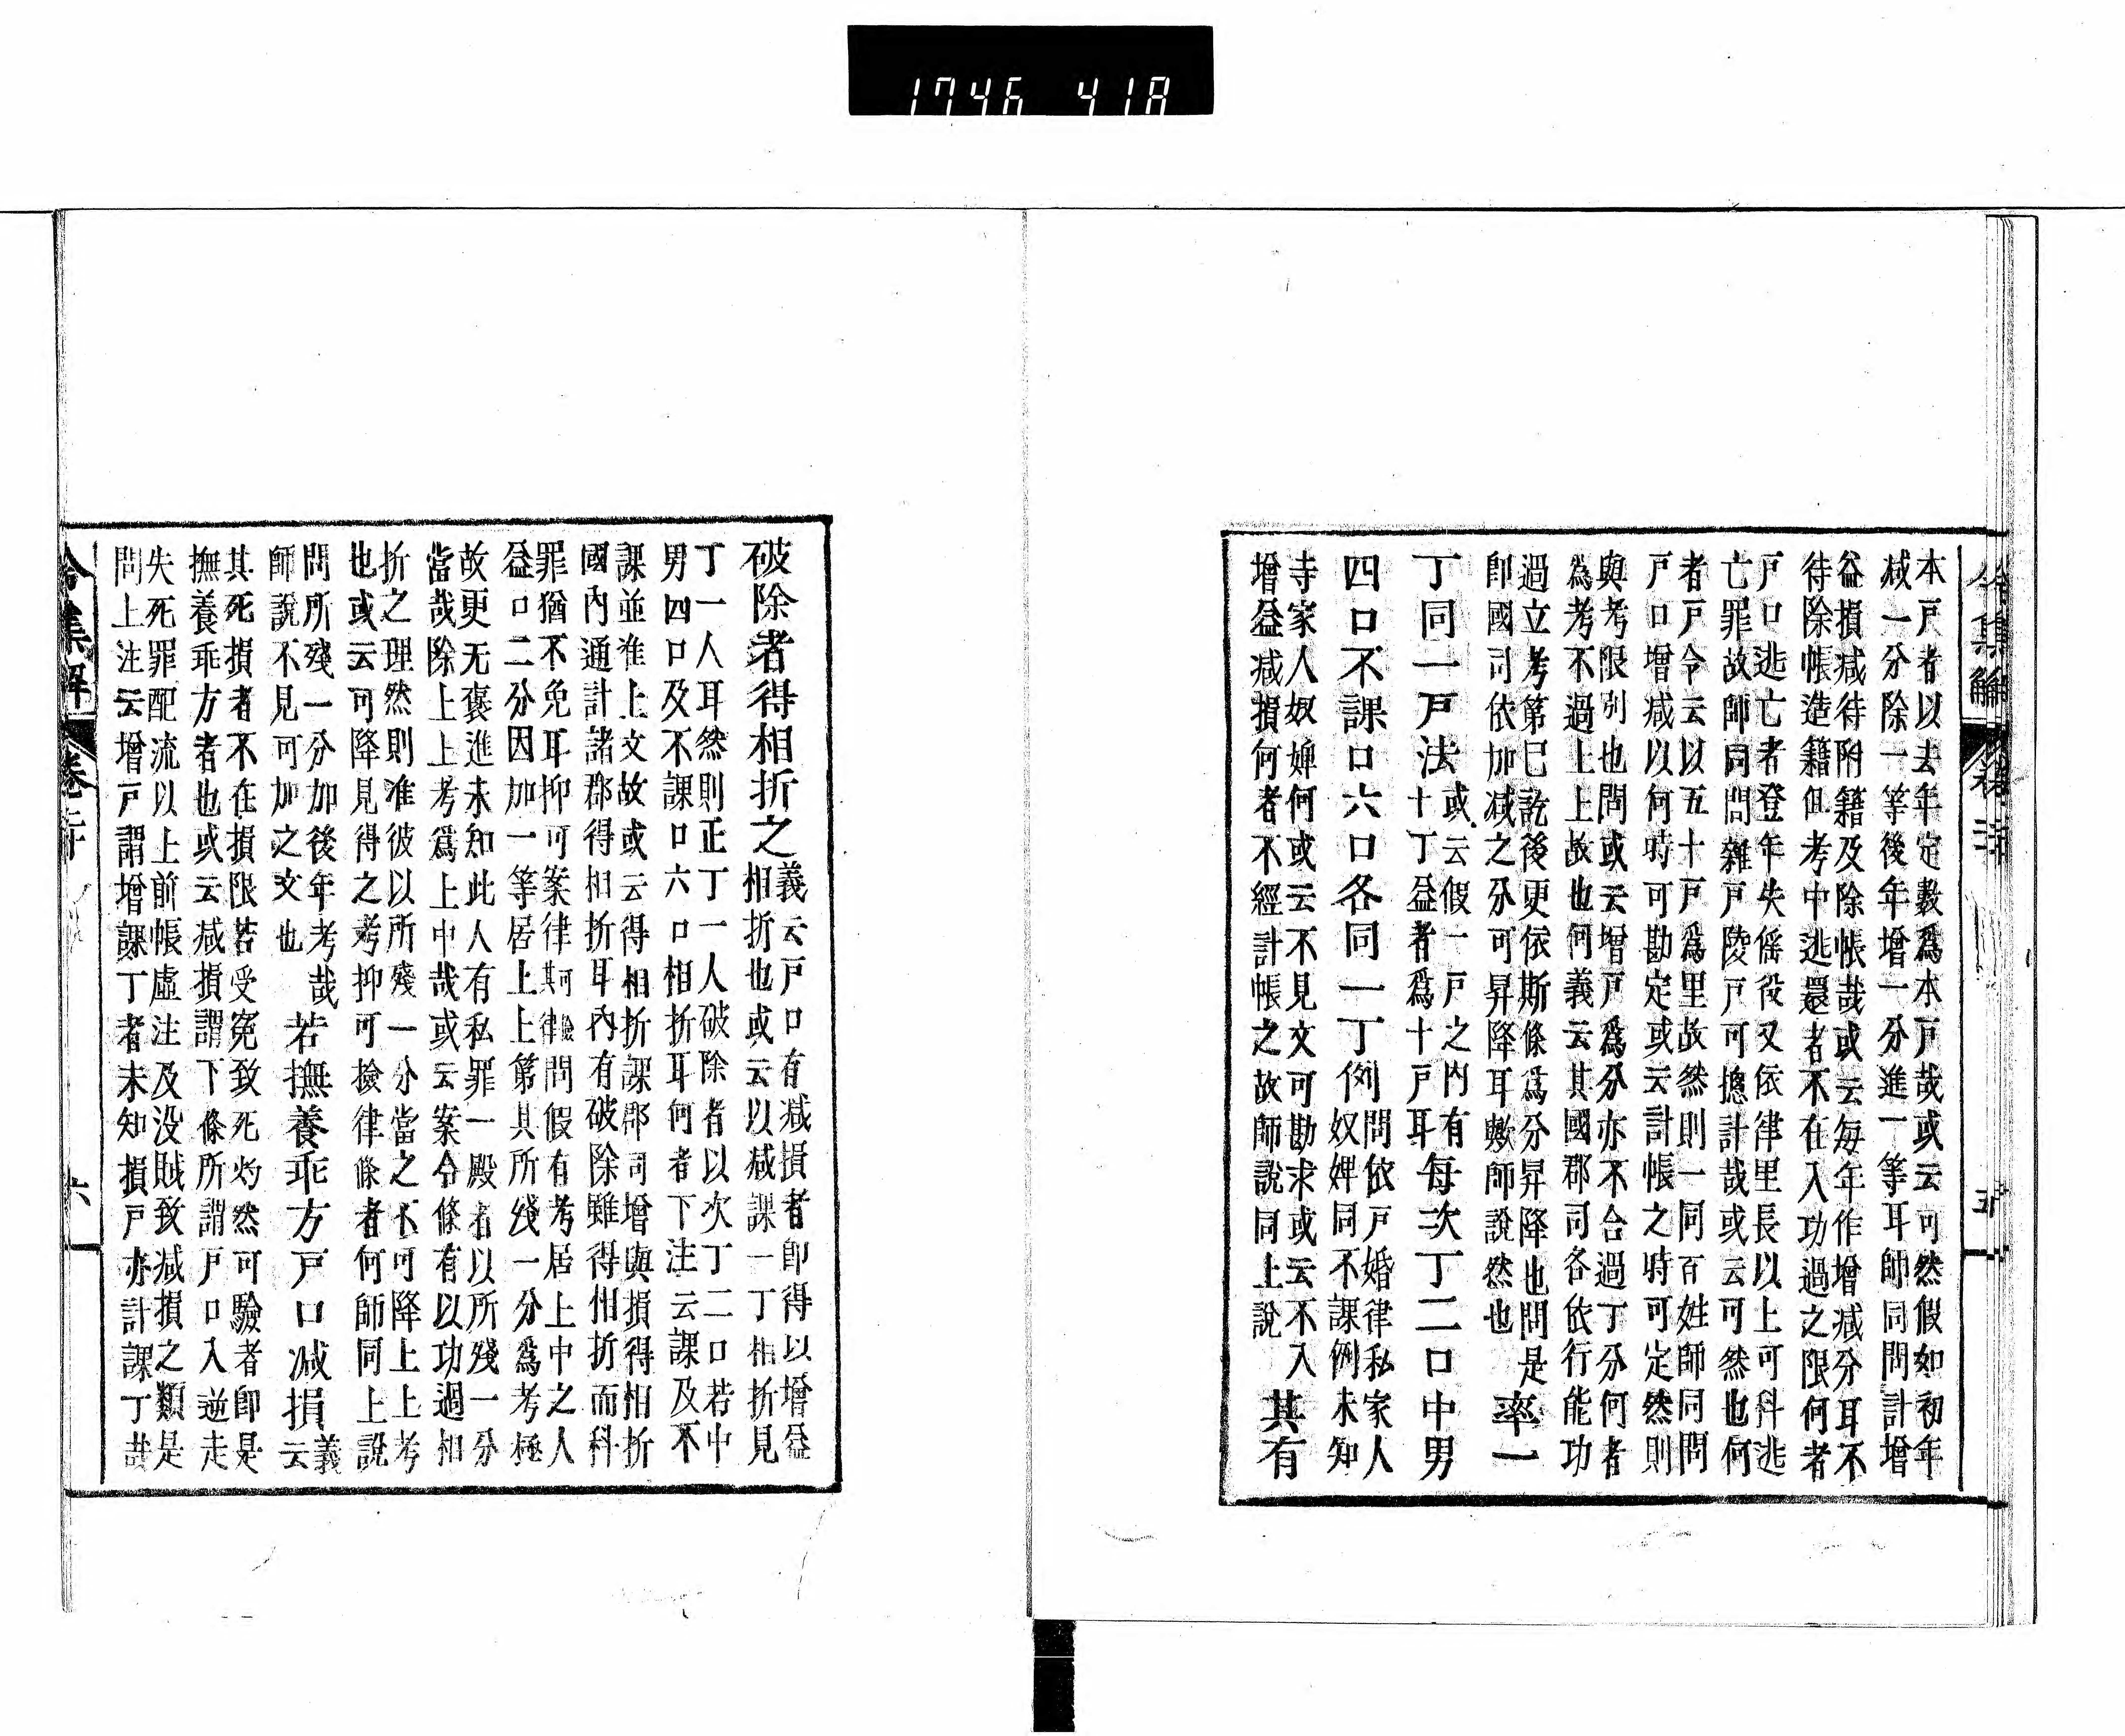 1746 418
令集解
卷二十
五
本戸者以去年定數爲本戸哉或云可然假如初年
减一分除一等後年增一分進一等耳師同問計增
益損减待附籍及除帳哉或云每年作增减分耳不
待除帳造籍但考中逃還者不在入功過之限何者
戸口逃亡者登年失傜役又依律里長以上可科逃
亡罪故師同問雜戸陵戸可摠計哉或云可然也何
者戸令云以五十戸爲里故然則一同百姓師同問
戸口增减以何時可勘定或云計帳之時可定然則
與考限別也問或云增戸爲分亦不合過丁分何者
爲考不過上上故也何義云其國郡司各依行能功
過立考第已訖後更依斯條爲分昇降也問是
卽國司依加减之分可昇降耳歟師說然也
率一
丁同一戸法
或云假一戸之內有
十丁益者爲十戸耳
每次丁二口中男
四口不課口六口各同一丁例
問依戸婚律私家人
奴婢同不課例未知
寺家人奴婢何或云不見文可勘求或云不入
增益减損何者不經計帳之故師說同上說
其有
破除者得相折之
義云戸口有减損者卽得以增益
相折也或云以减課一丁相折見
丁一人耳然則正丁一人破除者以次丁二口若中
男四口及不課口六口相折耳何者下注云課及不
課並准上文故或云得相折課郡司增與損得相折
國內通計諸郡得相折耳內有破除雖得相折而科
罪猶不免耳抑可案律其律問假有考居上中之人
益口二分因加一等居上上第其所殘一分爲考極
故更无褒進未知此人有私罪一殿者以所殘一分
當哉除上上考爲上中哉或云案令條有以功過相
折之理然則准彼以所殘一分當之不可降上上考
也或云可降見得之考抑可撿律條者何師同上說
問所殘一分加後年考哉
師說不見可加之文也
若撫養乖方戸口减損
義
云
其死損者不在損限若受寃致死灼然可驗者卽是
撫養乖方者也或云减損謂下條所謂戸口入逆走
失死罪配流以上前帳虛注及没賊致减損之類是
問上注云增戸謂增課丁者未知損戸亦計課丁哉
令集解
卷二十
六